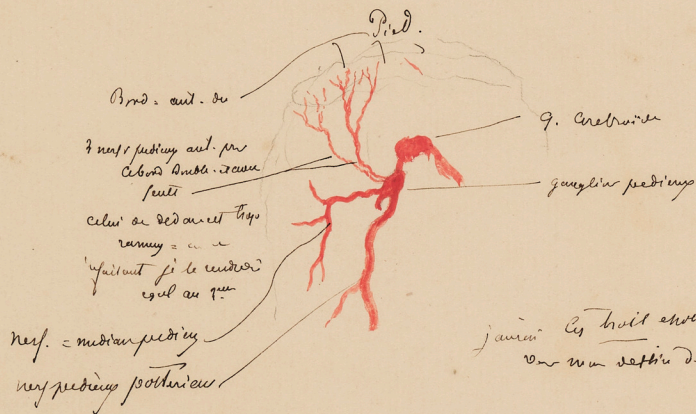 Pied.
Bord = ant. du
3 nerfs pedieux ant. pr
ce bord double
fente
celui de dedans et trop
rameux =
je le rendrai
egal au
nerf. = median pedieux
nerf pedieux posterieur
g. Cerebroide
ganglion pedieux
Les trois
voir mon dessin d.